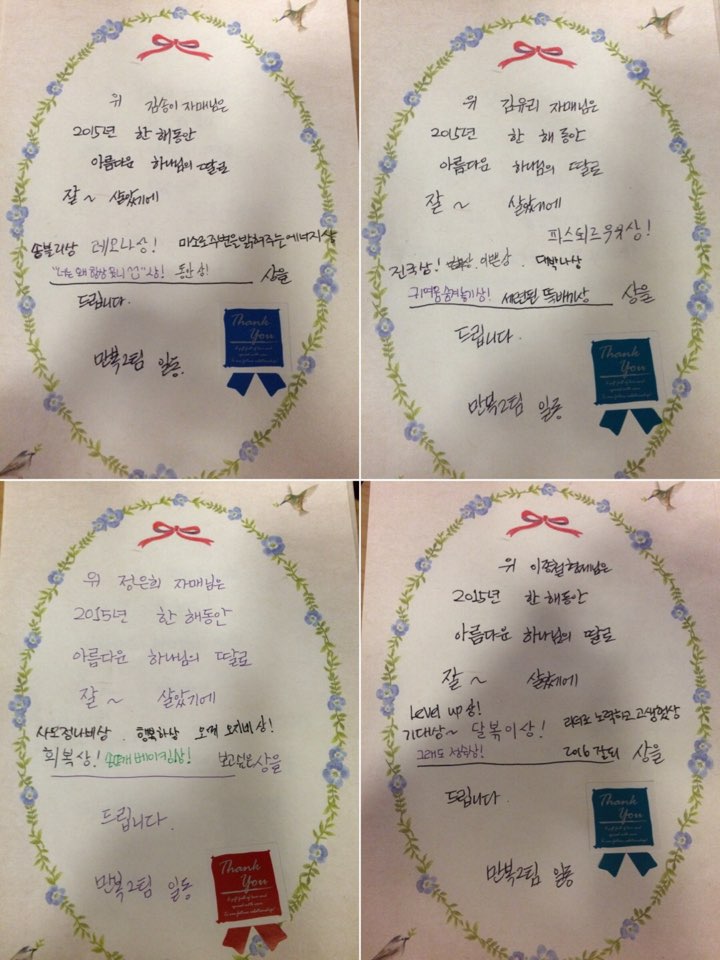 위 김송이 자매님은
2015년 한 해동안
아름다운 하나님의 딸로
잘~ 살았기에
송블리상 레오나상! 미소로주변을밝혀주는에너지상
"너는 왜 항상 웃니 상! 동안상! 상을
드립니다.
만복2팀 일동.
Thank You
위 김유리 자매님은
2015년 한 해동안
아름다운 하나님의 딸로
잘~ 살았기에
피스퇴르우윳상!
진국상! 이쁜상 대박나상
귀여움숨겨놓기상! 세련된 뚝배기상 상을
드립니다.
만복2팀 일동
Thank You
위 정은희 자매님은
2015년 한 해동안
아름다운 하나님의 딸로
잘~ 살았기에
사모정나비상. 행복하상 오께 오지네상!
회복상! 베이킹상! 보고싶은상을
드립니다.
만복2팀 일동
Thank You
위 형제님은
2015년 한 해동안
아름다운 하나님의 딸로
잘~ 살았기에
Level up상!
기대상~ 달복이상! 리더로 노력하고 고생했상
그래도 상! 2016 잘되 상을
드립니다.
만복2팀 일동
Thank You